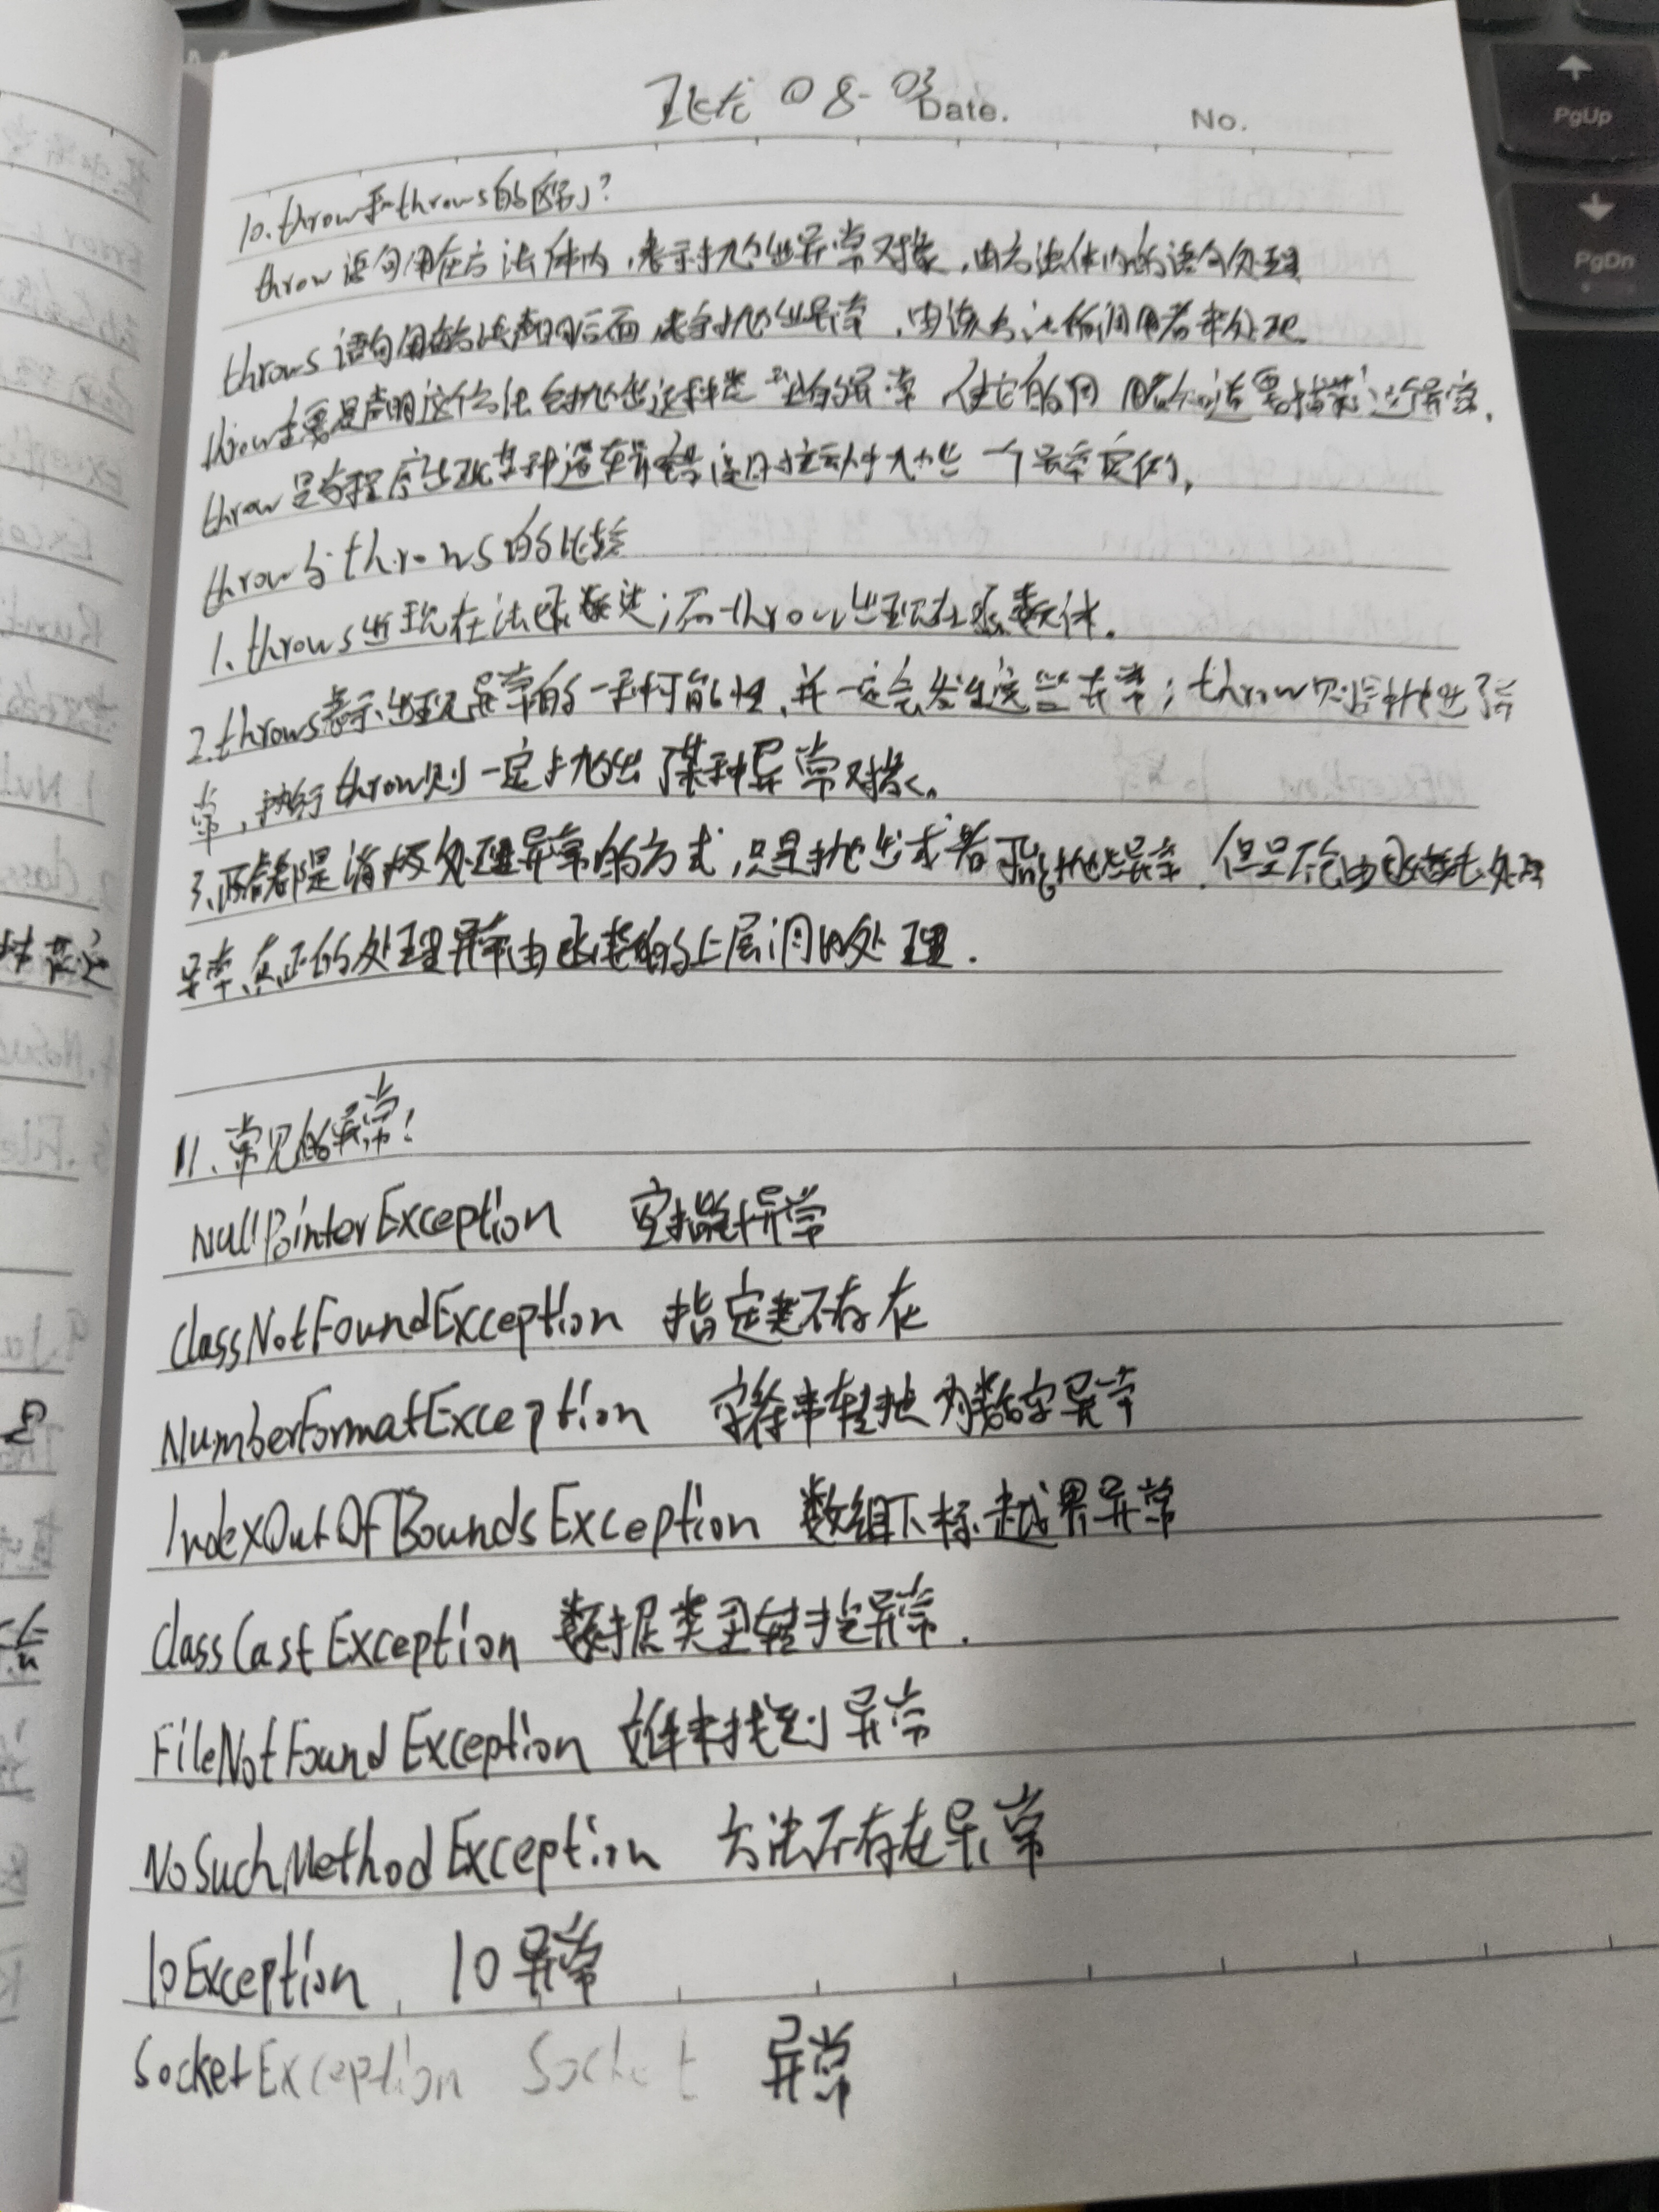 08-03
Date.
No.
PgUp
PgDn
10.throw和throws的区别?
throw语句用在方法体内,表示抛出异常对象,由方法体内的语句处理
throws语句用在方法声明后面 表示抛出异常,由该方法的调用者来处理
throw主要是声明这个方法会抛出这种类型的异常 使它的调用者知道要捕获这个异常.
throw是当程序出现某种逻辑错误时主动抛出一个异常实例,
throw与throws的比较
1.throws出现在方法函数头;而throw出现在函数体.
2.throws表示出现异常的一种可能性,并一定会发生这些异常;throw则是抛出了异
常,执行throw则一定抛出了某种异常对象.
3.两者都是消极处理异常的方式,只是抛出或者可能抛出异常.但是不会由函数去处理
异常,真正的处理异常由函数的上层调用处理.
11.常见的异常!
NullPointerException 空指针异常
ClassNotFoundException 指定类不存在
NumberFormatException 字符串转换为数字异常
IndexOutOfBoundsException 数组下标越界异常
ClassCastException 数据类型转换异常.
FileNotFoundException 文件未找到异常
NoSuchMethodException 方法不存在异常
IoException IO异常
SocketException Socket 异常